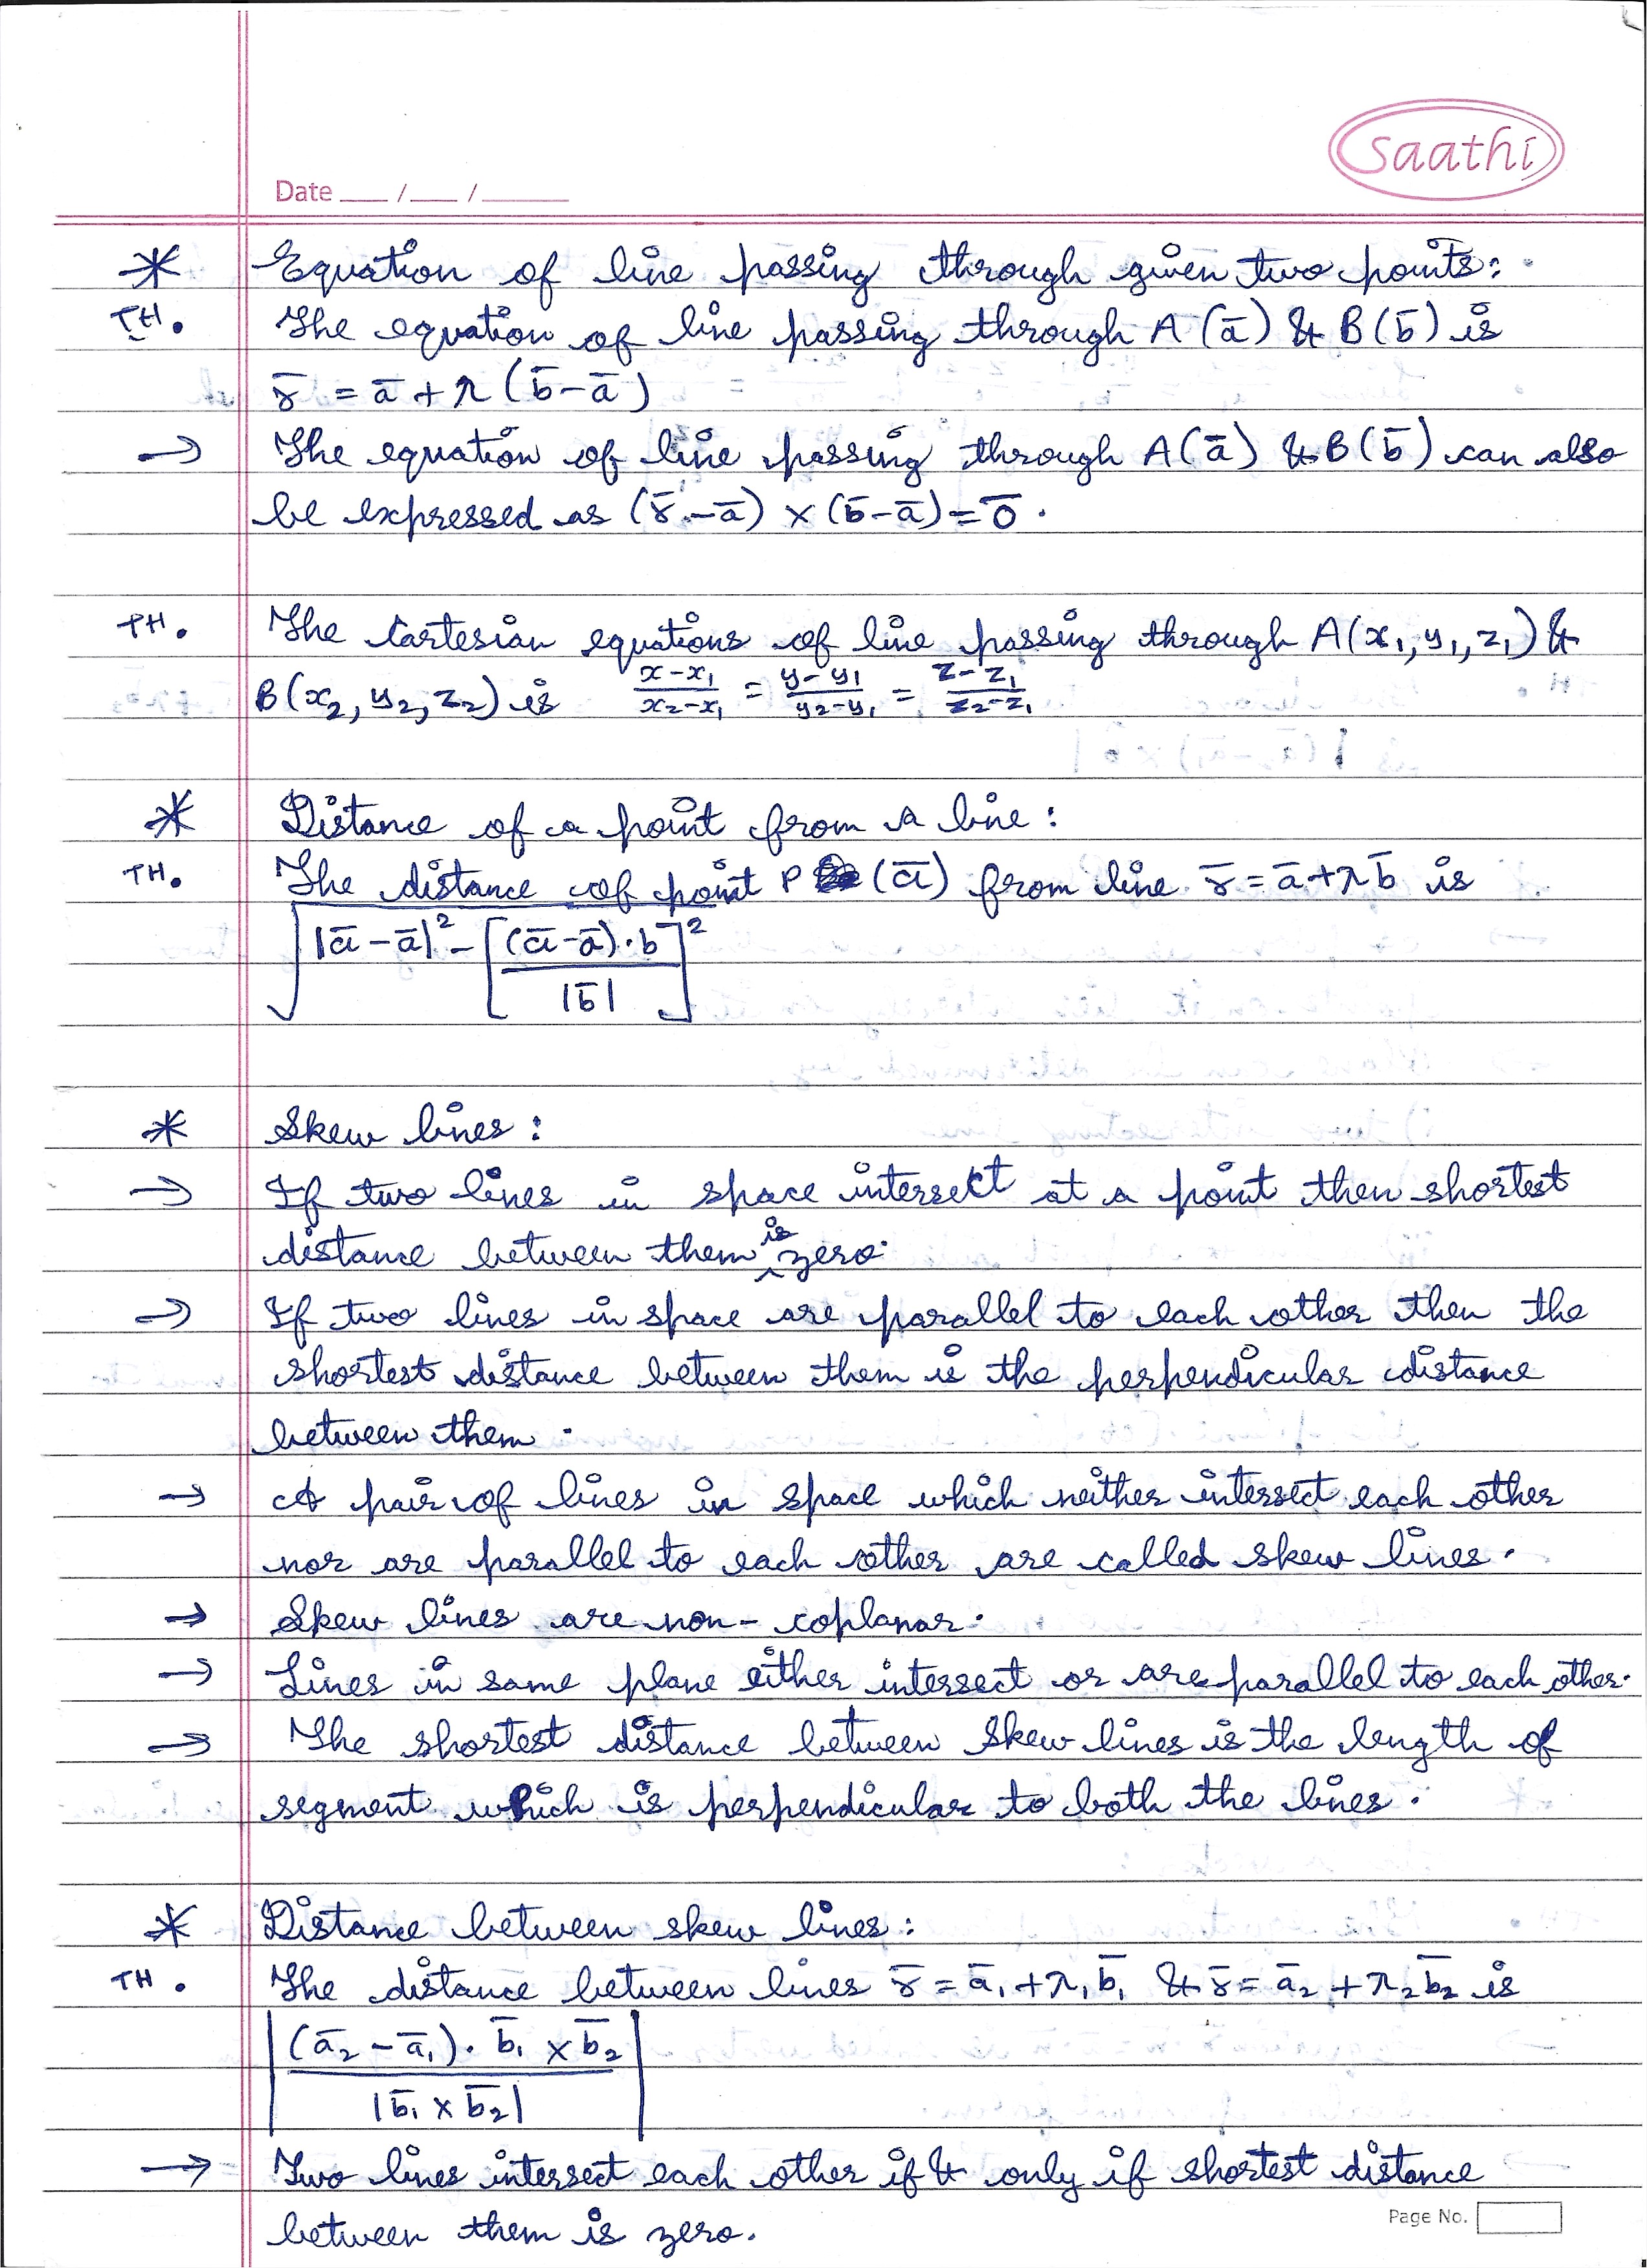 Saathi
Date ___/___/______
* Equation of line passing through given two points:
TH. The equation of line passing through A(a̅) & B(b̅) is
r̅ = a̅ + λ(b̅ - a̅)
→ The equation of line passing through A(a̅) & B(b̅) can also
be expressed as (r̅ - a̅) × (b̅ - a̅) = 0̅.
TH. The Cartesian equations of line passing through A(x₁, y₁, z₁) &
B(x₂, y₂, z₂) is (x - x₁)/(x₂ - x₁) = (y - y₁)/(y₂ - y₁) = (z - z₁)/(z₂ - z₁)
* Distance of a point from a line:
TH. The distance of point P (α̅) from line r̅ = a̅ + λb̅ is
√(|α̅ - a̅|² - [((α̅ - a̅)·b)/|b̅|]²)
* Skew lines:
→ If two lines in space intersect at a point then shortest
distance between them is zero.
→ If two lines in space are parallel to each other then the
shortest distance between them is the perpendicular distance
between them.
→ A pair of lines in space which neither intersect each other
nor are parallel to each other are called skew lines.
→ Skew lines are non-coplanar.
→ Lines in same plane either intersect or are parallel to each other.
→ The shortest distance between skew lines is the length of
segment which is perpendicular to both the lines.
* Distance between skew lines:
TH. The distance between lines r̅ = a̅₁ + λ₁b̅₁ & r̅ = a̅₂ + λ₂b̅₂ is
|((a̅₂ - a̅₁)· b̅₁ × b̅₂)/|b̅₁ × b̅₂||
→ Two lines intersect each other if & only if shortest distance
between them is zero.
Page No.